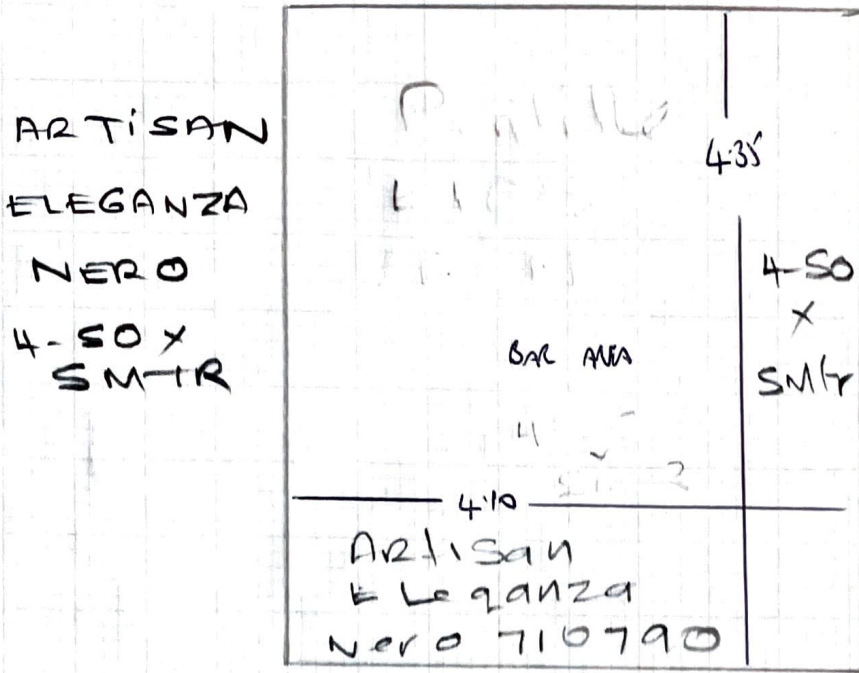 ARTiSAN
ELEGANZA
NERO
4-50 X
5M-TR
4.35
4-50
X
5Mtr
BAR AREA
4.10
ARtisan
ELeganza
Nero 710790